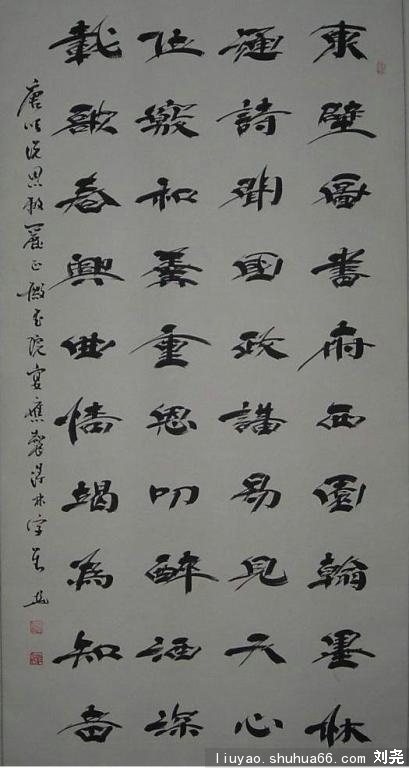 東壁圖書府西園翰墨林
誦詩聞國政講易見天心
位竊和羹重恩叨醉酒深
載歌春興曲情竭為知音
唐张说恩敕麗正殿书院宴應製得林字
liuyao.shuhua66.com 刘尧